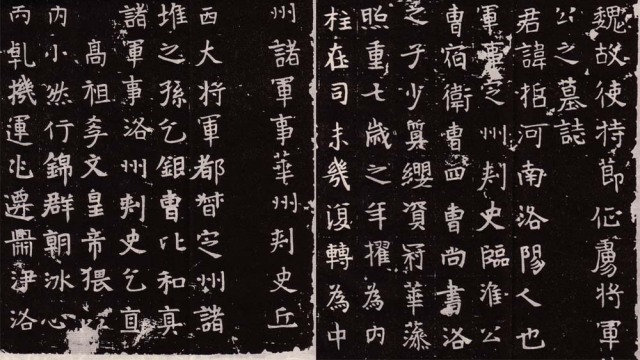 魏故使持節征虜將軍
公之墓誌
君諱河南洛陽人也
軍事定州刺史臨淮公
曹宿衛曹四曹尚書洛
之子少襲纓資冠華藻
照重七歲之年擢為內
柱在司未幾復轉為中
州諸軍事華州刺史丘
西大將軍都督定州諸
堆之孫乞鉏曹比和真
諸軍事洛州刺史乞直
高祖孝文皇帝猥
內小然行錦群朝冰心
丙乹機運兆遷鼎伊洛